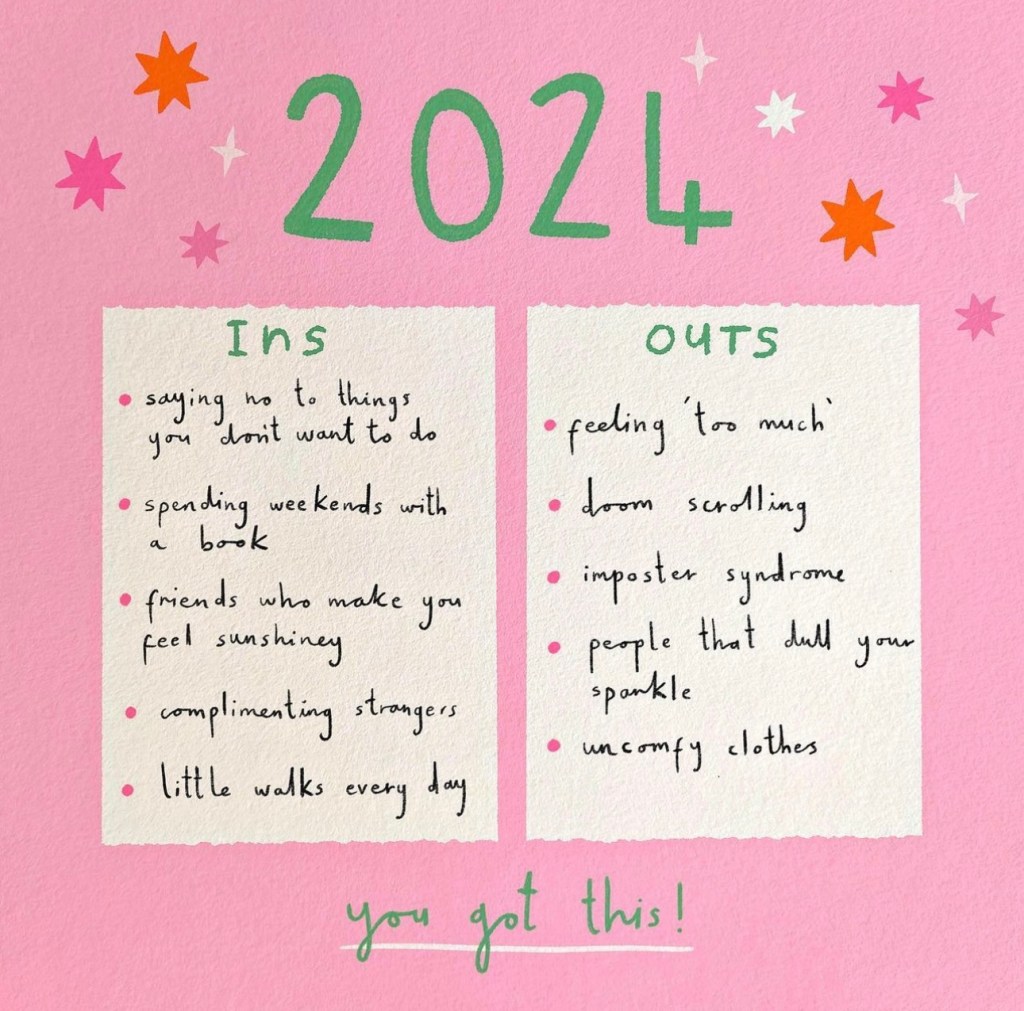 2024
Ins
• saying no to things
you don't want to do
• spending weekends with
a book
• friends who make you
feel sunshiney
• complimenting strangers
• little walks every day
OUTS
• feeling 'too much'
• doom scrolling
• imposter syndrome
• people that dull your
sparkle
• uncomfy clothes
you got this!